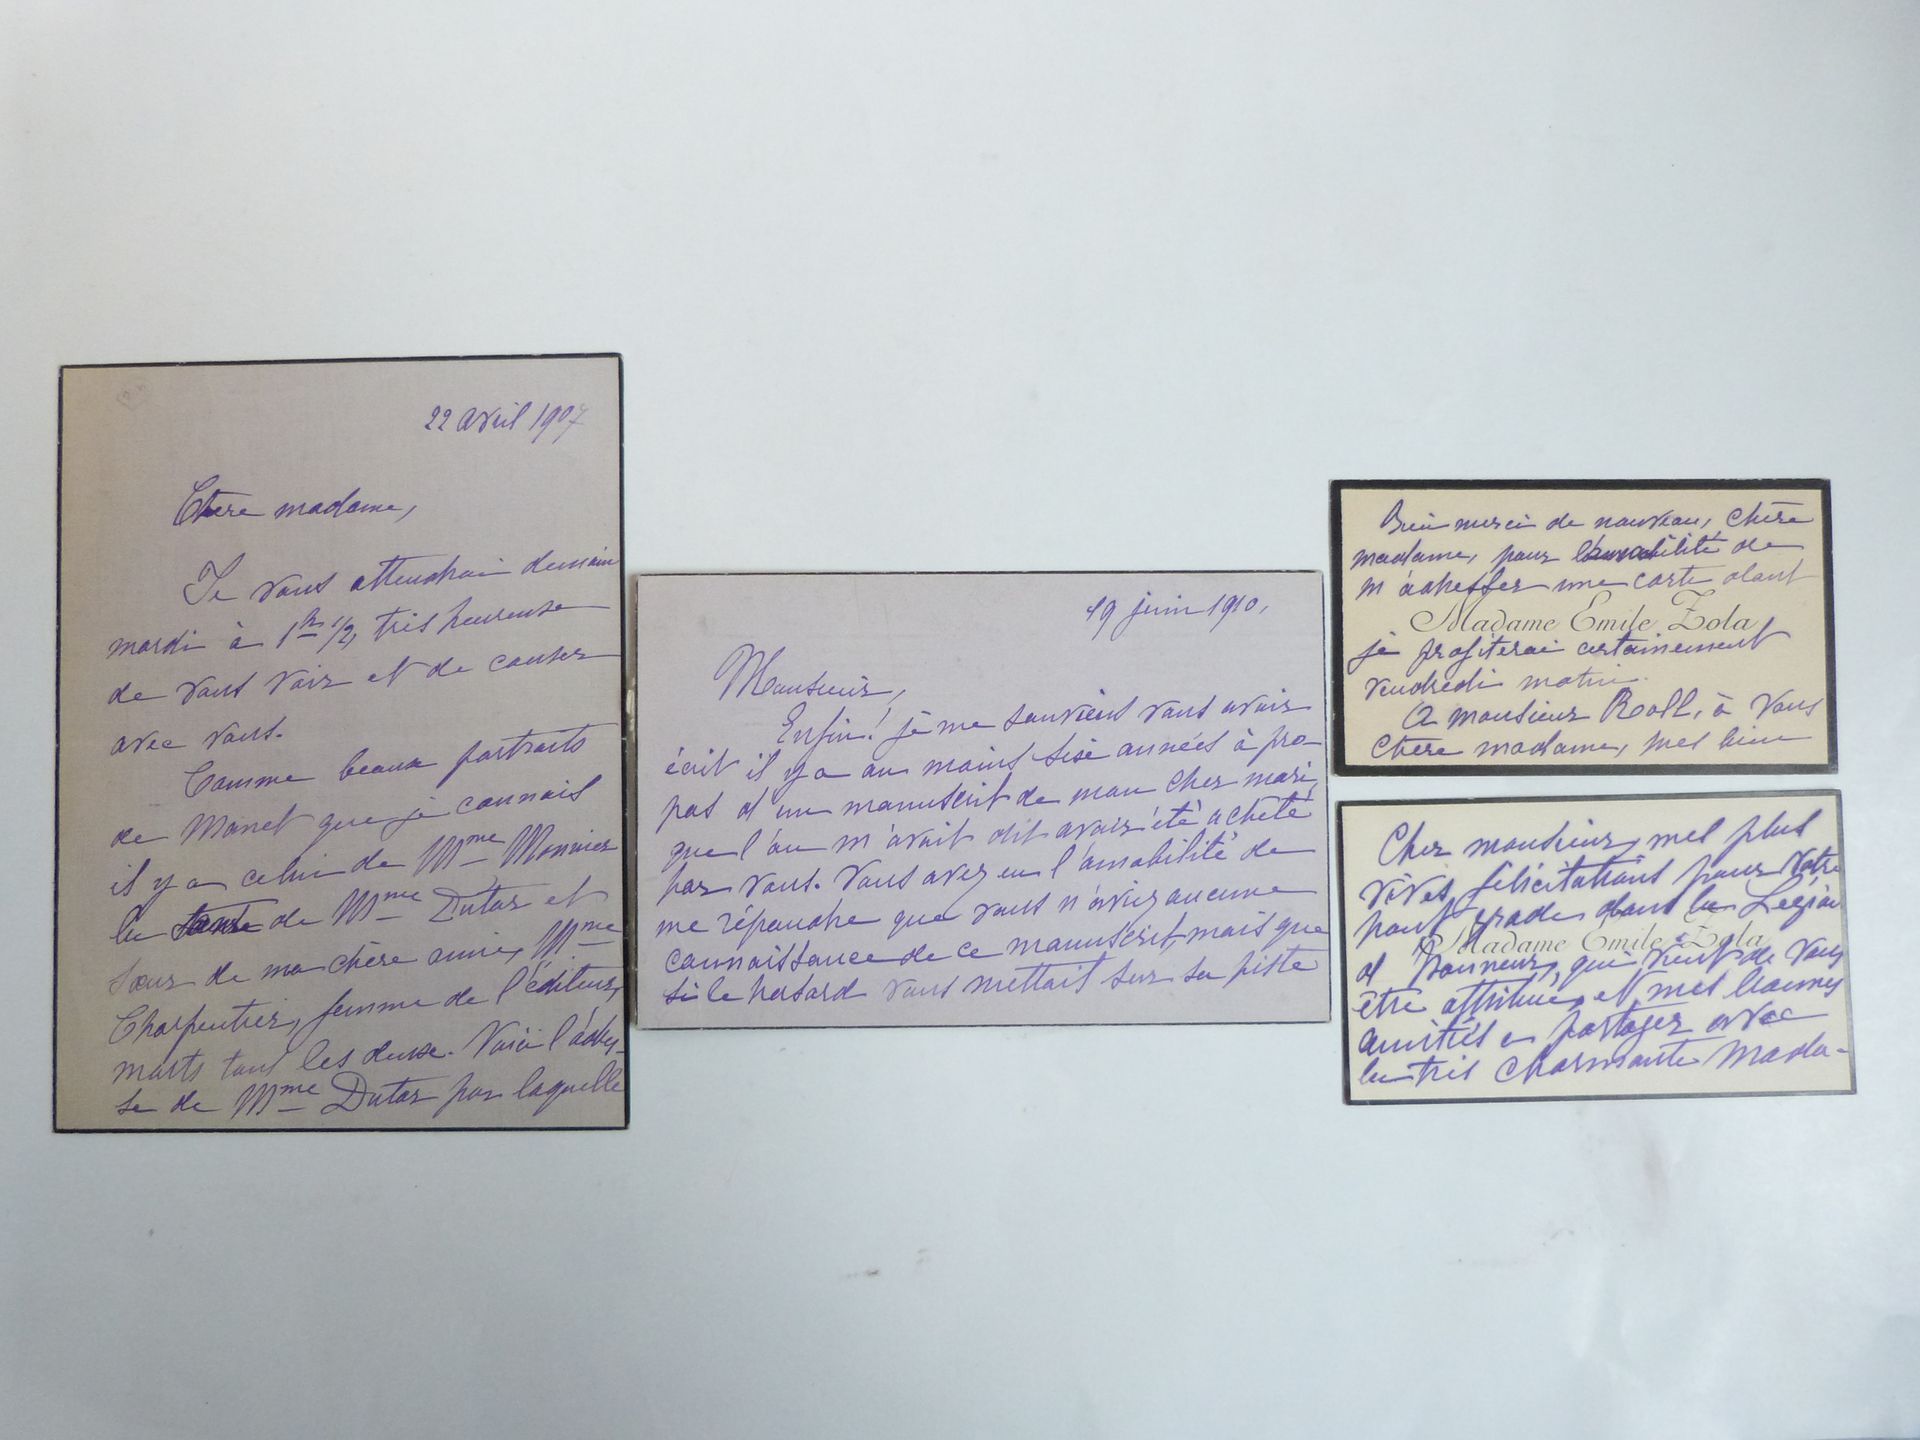 22 avril 1907
Chère madame,
Je vous attendrai demain
mardi à 1h 1/2, très heureuse
de vous voir et de causer
avec vous.
Comme beaux portraits
de Manet que je connais
il y a celui de Mme
la de Mme Dutar et
sœur de ma chère amie, Mme
Charpentier, femme de l'éditeur,
morts tous les deux. Voici l'adres-
se de Mme Dutar par laquelle
19 juin 1910.
Monsieur,
Enfin! je me souviens vous avoir
écrit il y a au moins sixe années à pro-
pos d'un manuscrit de mon cher mari,
que l'on m'avait dit avoir été acheté
par vous. Vous avez eu l'amabilité de
me répondre que vous n'aviez aucune
connaissance de ce manuscrit, mais que
si le hasard vous mettait sur sa piste
Bien merci de nouveau, chère
madame, pour l'amabilité de
m'adresser une carte dont
Madame Emile Zola
je profiterai certainement
vendredi matin.
A monsieur Roll, à vous
chère madame, mes bien
Cher monsieur, mes plus
vives félicitations pour votre
haut grade dans la Légion
Madame Emile Zola
d'honneur, qui vient de vous
être attribué, et mes bonnes
amitiés à partager avec
la très charmante Mada-